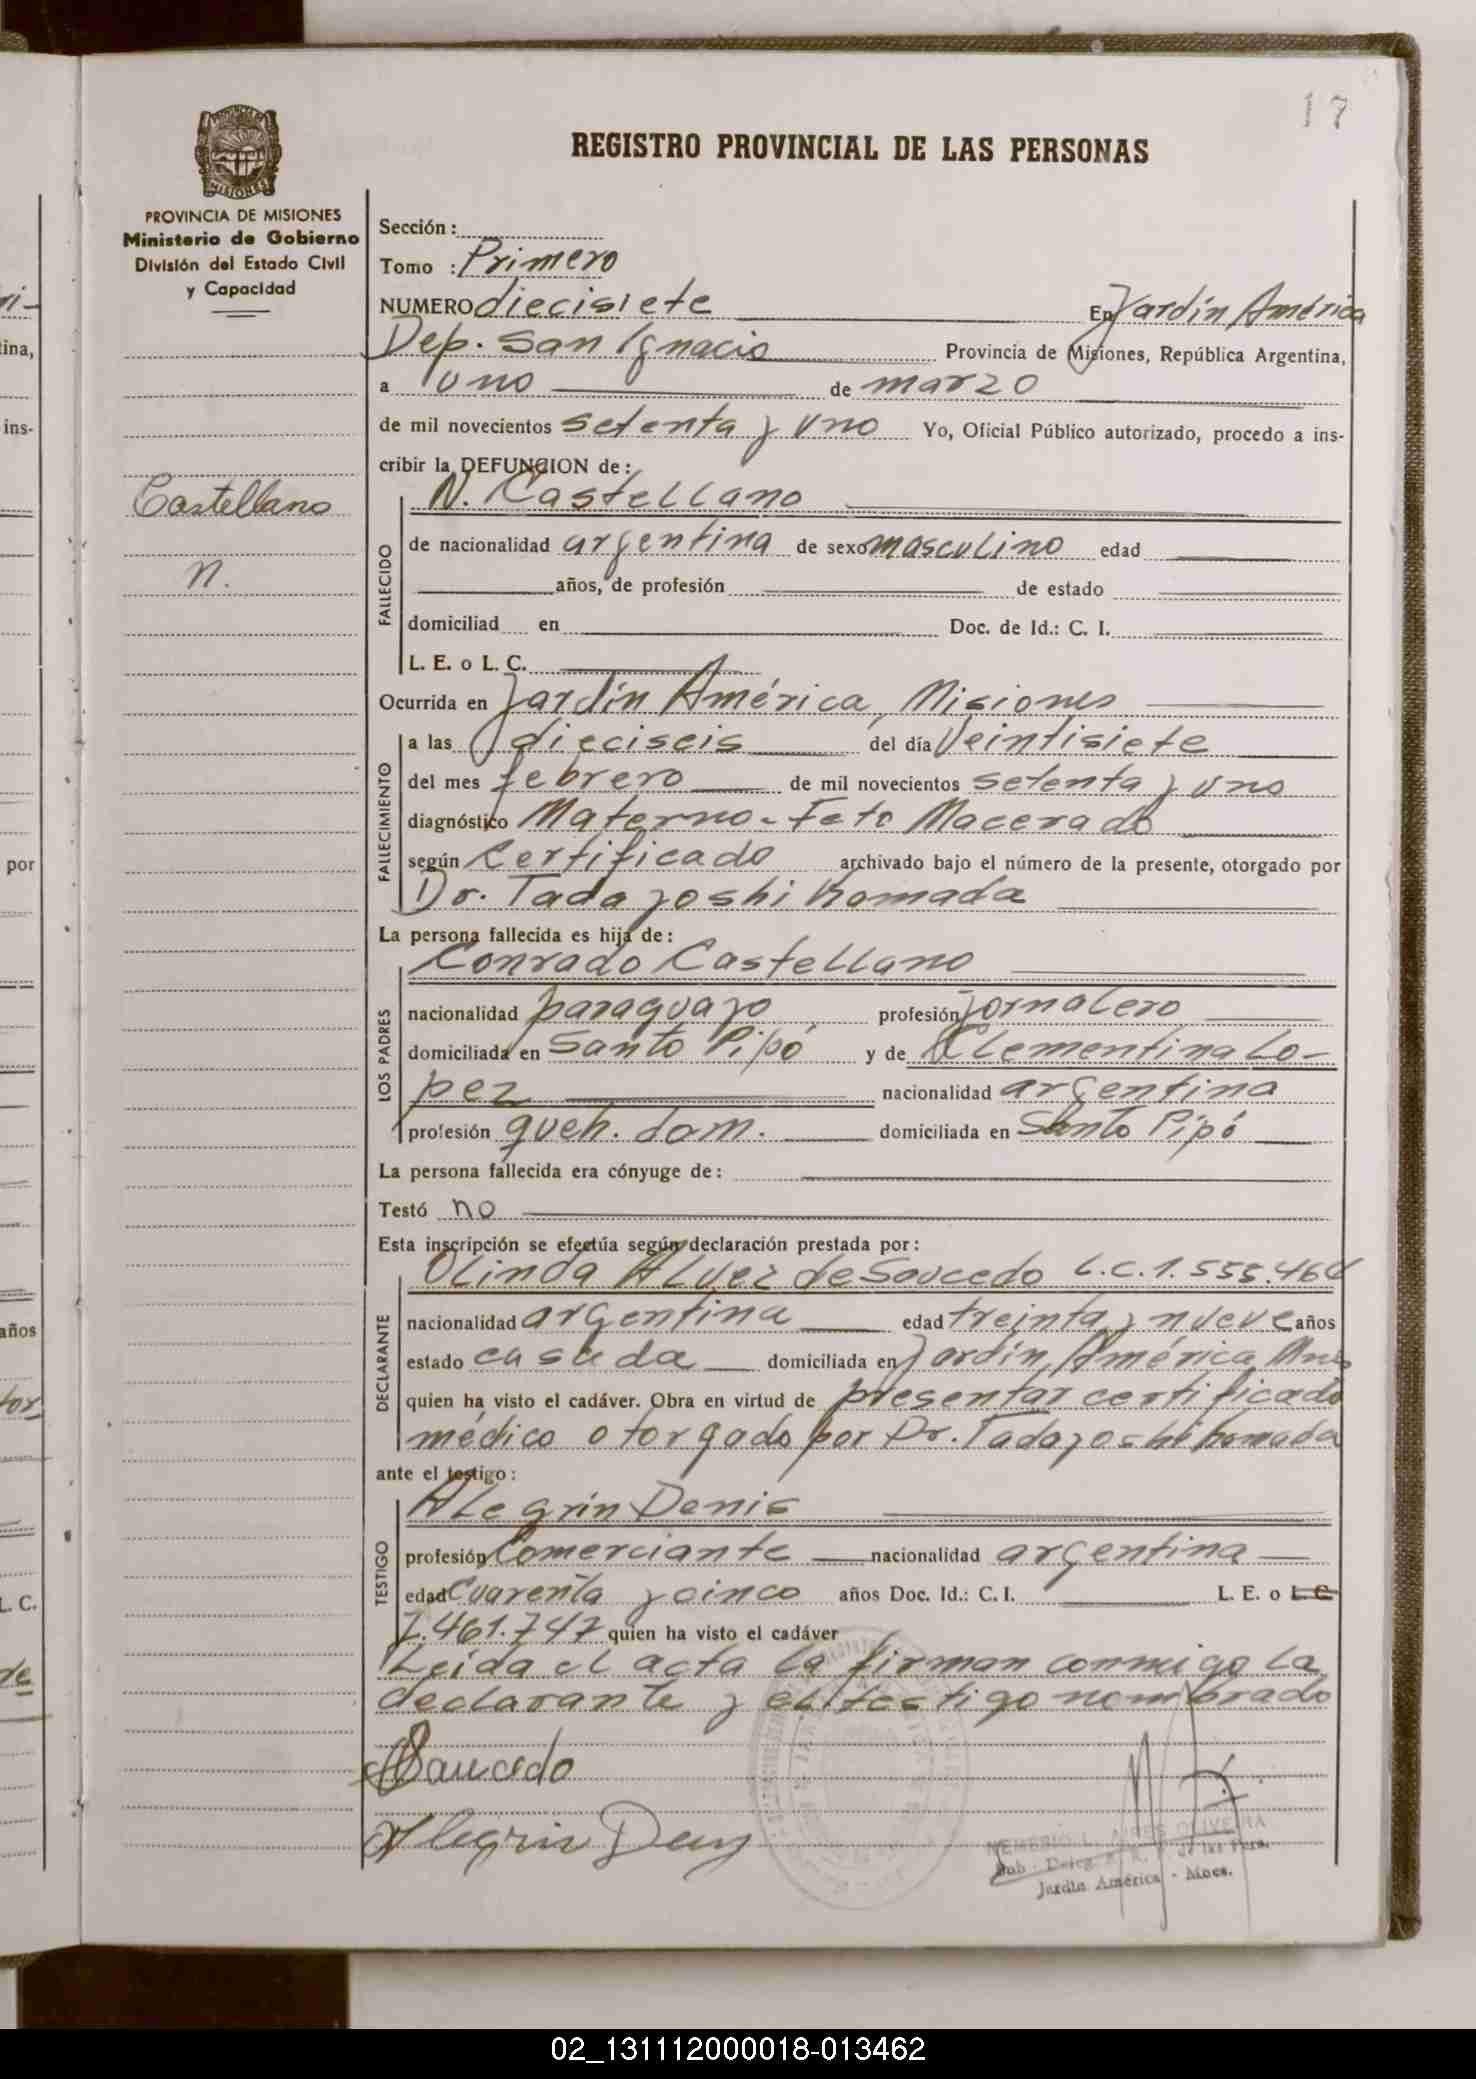 17
REGISTRO PROVINCIAL DE LAS PERSONAS
PROVINCIA DE MISIONES
Ministerio de Gobierno
División del Estado Civil
y Capacidad
Castellano
N.
Sección:
Tomo : Primero
NUMERO diecisiete En Jardín América
Dep. San Ignacio Provincia de Misiones, República Argentina,
a uno de marzo
de mil novecientos setenta y uno Yo, Oficial Público autorizado, procedo a ins-
cribir la DEFUNCION de:
N. Castellano
FALLECIDO
de nacionalidad argentina de sexo masculino edad
años, de profesión de estado
domiciliad en Doc. de Id.: C. I.
L. E. o L. C.
Ocurrida en Jardín América, Misiones
FALLECIMIENTO
a las dieciseis del día Veintisiete
del mes febrero de mil novecientos setenta y uno
diagnóstico Materno-Feto Macerado
según Certificado archivado bajo el número de la presente, otorgado por
Dr. Tadayoshi Komada
La persona fallecida es hija de:
Conrado Castellano
LOS PADRES
nacionalidad paraguayo profesión jornalero
domiciliada en Santo Pipó y de Clementina Lo-
pez nacionalidad argentina
profesión queh. dom. domiciliada en Santo Pipó
La persona fallecida era cónyuge de:
Testó no
Esta inscripción se efectúa según declaración prestada por:
Olinda Alvez de Saucedo L.C. 1.555.464
DECLARANTE
nacionalidad argentina edad treinta y nueve años
estado casada domiciliada en Jardín América Mnes
quien ha visto el cadáver. Obra en virtud de presentar certificado
médico otorgado por Dr. Tadayoshi Komada
ante el testigo:
Alegrín Denis
TESTIGO
profesión Comerciante nacionalidad argentina
edad Cuarenta y cinco años Doc. Id.: C. I. L. E. o L C
7.461.747 quien ha visto el cadáver
Leída el acta la firman conmigo la
declarante y el testigo nombrado
Saucedo
Alegrin Deny
OLIVEIRA
Sub - Deleg. de las Pers.
Jardín América - Mnes.
02_131112000018-013462